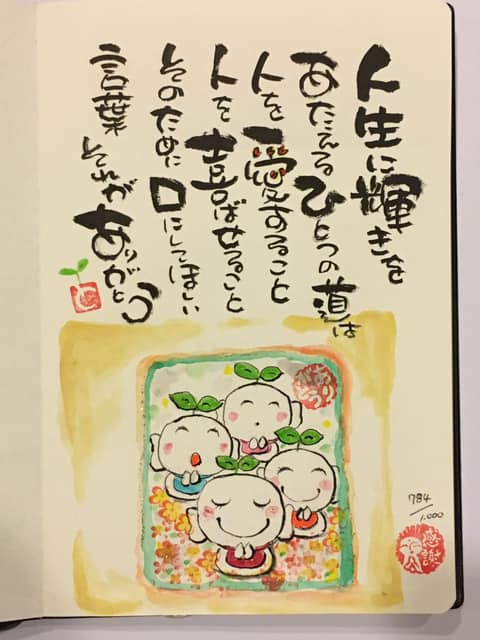 人生に輝きを
あたえるひとつの道は
人を愛すること
人を喜ばせること
そのために口にしてほしい
言葉それがありがとう
784/1.000
感謝